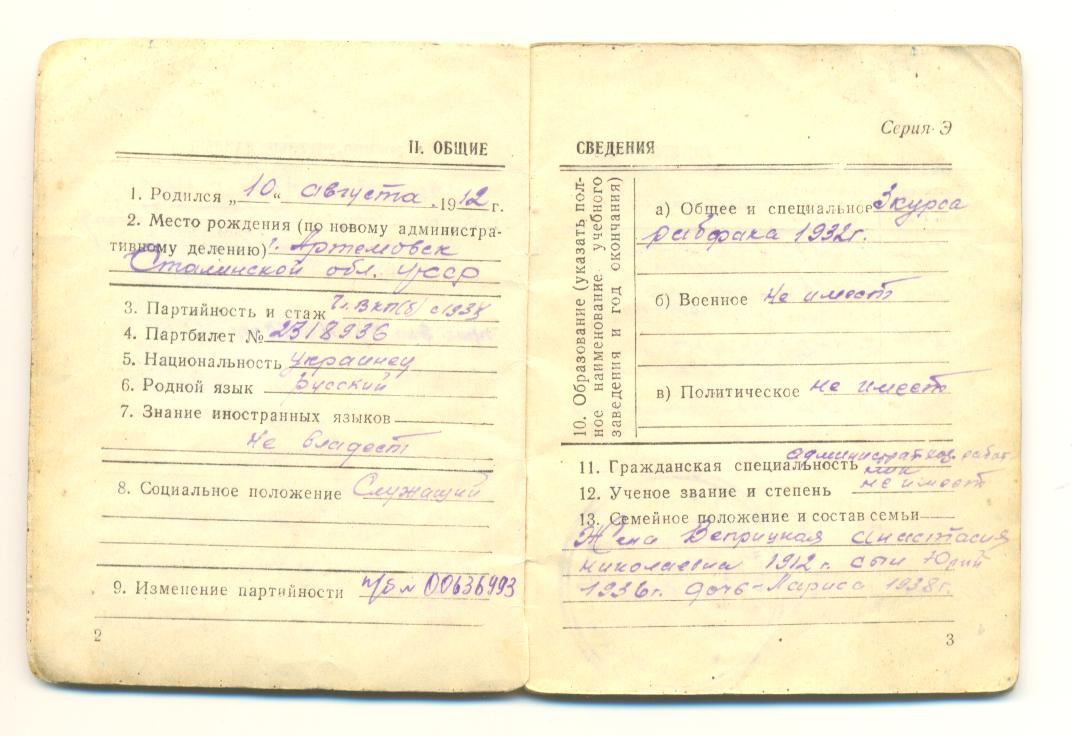 II. ОБЩИЕ
1. Родился „10“ августа 1912 г.
2. Место рождения (по новому административ-
тивному делению) г. Артемовск
Сталинской обл. УССР
3. Партийность и стаж Чл. ВКП(б) с 1938
4. Партбилет № 2318936
5. Национальность украинец
6. Родной язык русский
7. Знание иностранных языков
Не владеет
8. Социальное положение Служащий
9. Изменение партийности п/б № 00636993
2
Серия Э
СВЕДЕНИЯ
10. Образование (указать пол-
ное наименование учебного
заведения и год окончания)
а) Общее и специальное 3 курса
рабфака 1932г.
б) Военное Не имеет
в) Политическое не имеет
11. Гражданская специальность административ. работ-
ник
12. Ученое звание и степень не имеет
13. Семейное положение и состав семьи
Жена Веприцкая Анастасия
Николаевна 1912 г. сын Юрий
1936г. дочь-Лариса 1938г.
3